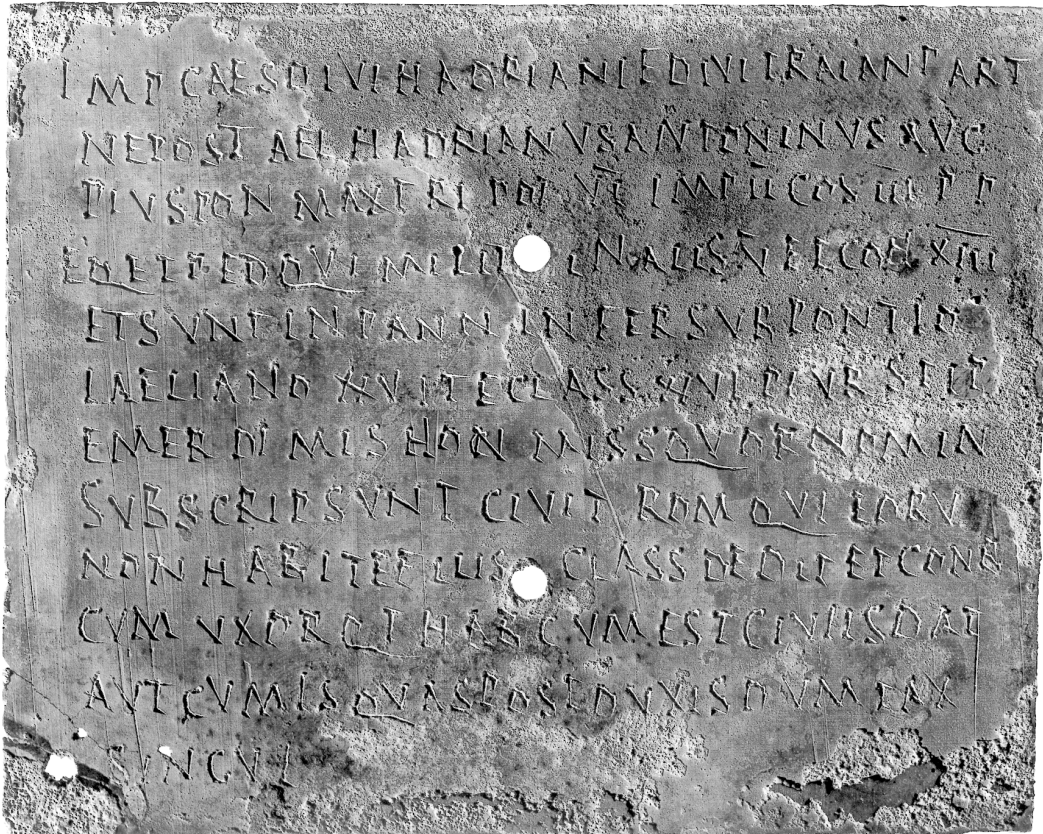 IMP CAES DIVI HADRIANI F DIVI TRAIAN PART
NEPOS T AEL HADRIANVS ANTONINVS AVG
PIVS PON MAX TRI POT VI IMP II COS III P P
EQ ET PED QVI MILIT IN ALIS V ET COH XIII
ET SVNT IN PANN INFER SVB PONTIO
LAELIANO XXV ITE CLASS XXVI PLVR STIP
EMER DIMIS HON MISS QVOR NOMIN
SVBSCRIPSVNT CIVIT ROM QVI EORV
NON HAB ITE FILIIS CLASS DEDIT ET CONN
CVM VXOR QT HAB CVM EST CIVIT IIS DAT
AVT CVM IS QVAS POST DVXIS DVMTAX
SINGVL